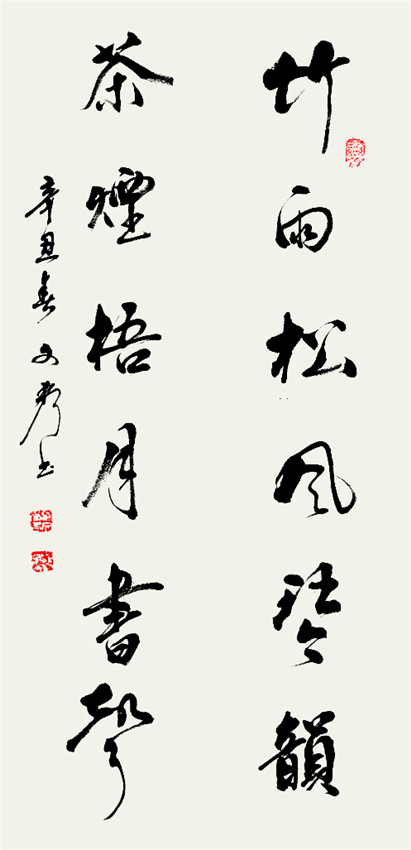 竹雨松風琴韻
茶煙梧月書聲
辛丑春文彬书